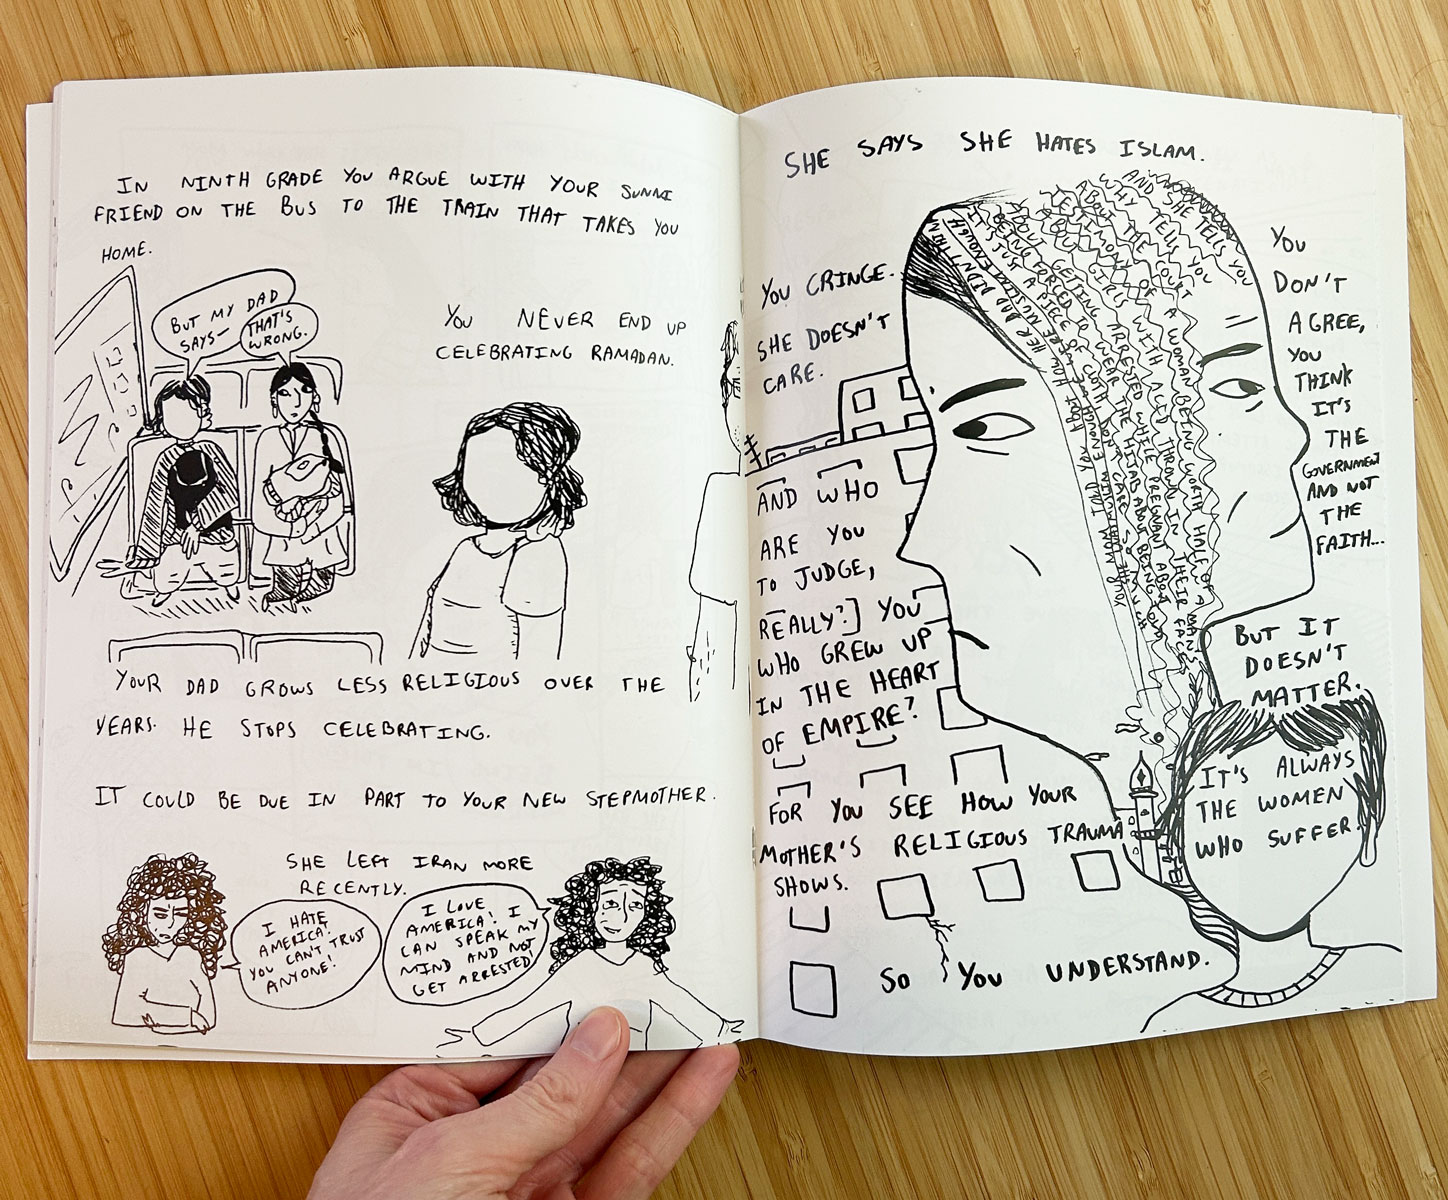 IN NINTH GRADE YOU ARGUE WITH YOUR SUNNI
FRIEND ON THE BUS TO THE TRAIN THAT TAKES YOU
HOME.
BUT MY DAD
SAYS—
THAT'S
WRONG.
YOU NEVER END UP
CELEBRATING RAMADAN.
YOUR DAD GROWS LESS RELIGIOUS OVER THE
YEARS. HE STOPS CELEBRATING.
IT COULD BE DUE IN PART TO YOUR NEW STEPMOTHER.
SHE LEFT IRAN MORE
RECENTLY.
I HATE
AMERICA!
YOU CAN'T TRUST
ANYONE!
I LOVE
AMERICA! I
CAN SPEAK MY
MIND AND NOT
GET ARRESTED!
SHE SAYS SHE HATES ISLAM.
YOU CRINGE.
SHE DOESN'T
CARE.
AND SHE TELLS YOU
WHY TELLS YOU
ABOUT THE COURT
TESTIMONY OF A WOMAN BEING WORTH HALF OF A MAN'S
ABOUT GIRLS WITH ACID THROWN IN THEIR FACES
ABOUT GETTING ARRESTED WHILE PREGNANT ABOUT
BEING FORCED TO WEAR THE HIJAB ABOUT BEING TOLD
IT'S JUST A PIECE OF CLOTH DON'T CARE SO MUCH
ABOUT HOW HER DAD DIDN'T THINK
WE WERE MUSLIM ENOUGH
YOU
DON'T
AGREE,
YOU
THINK
IT'S
THE
GOVERNMENT
AND NOT
THE
FAITH...
AND WHO
ARE YOU
TO JUDGE,
REALLY?] YOU
WHO GREW UP
IN THE HEART
OF EMPIRE?
BUT IT
DOESN'T
MATTER.
IT'S ALWAYS
THE WOMEN
WHO SUFFER.
FOR YOU SEE HOW YOUR
MOTHER'S RELIGIOUS TRAUMA
SHOWS.
SO YOU UNDERSTAND.